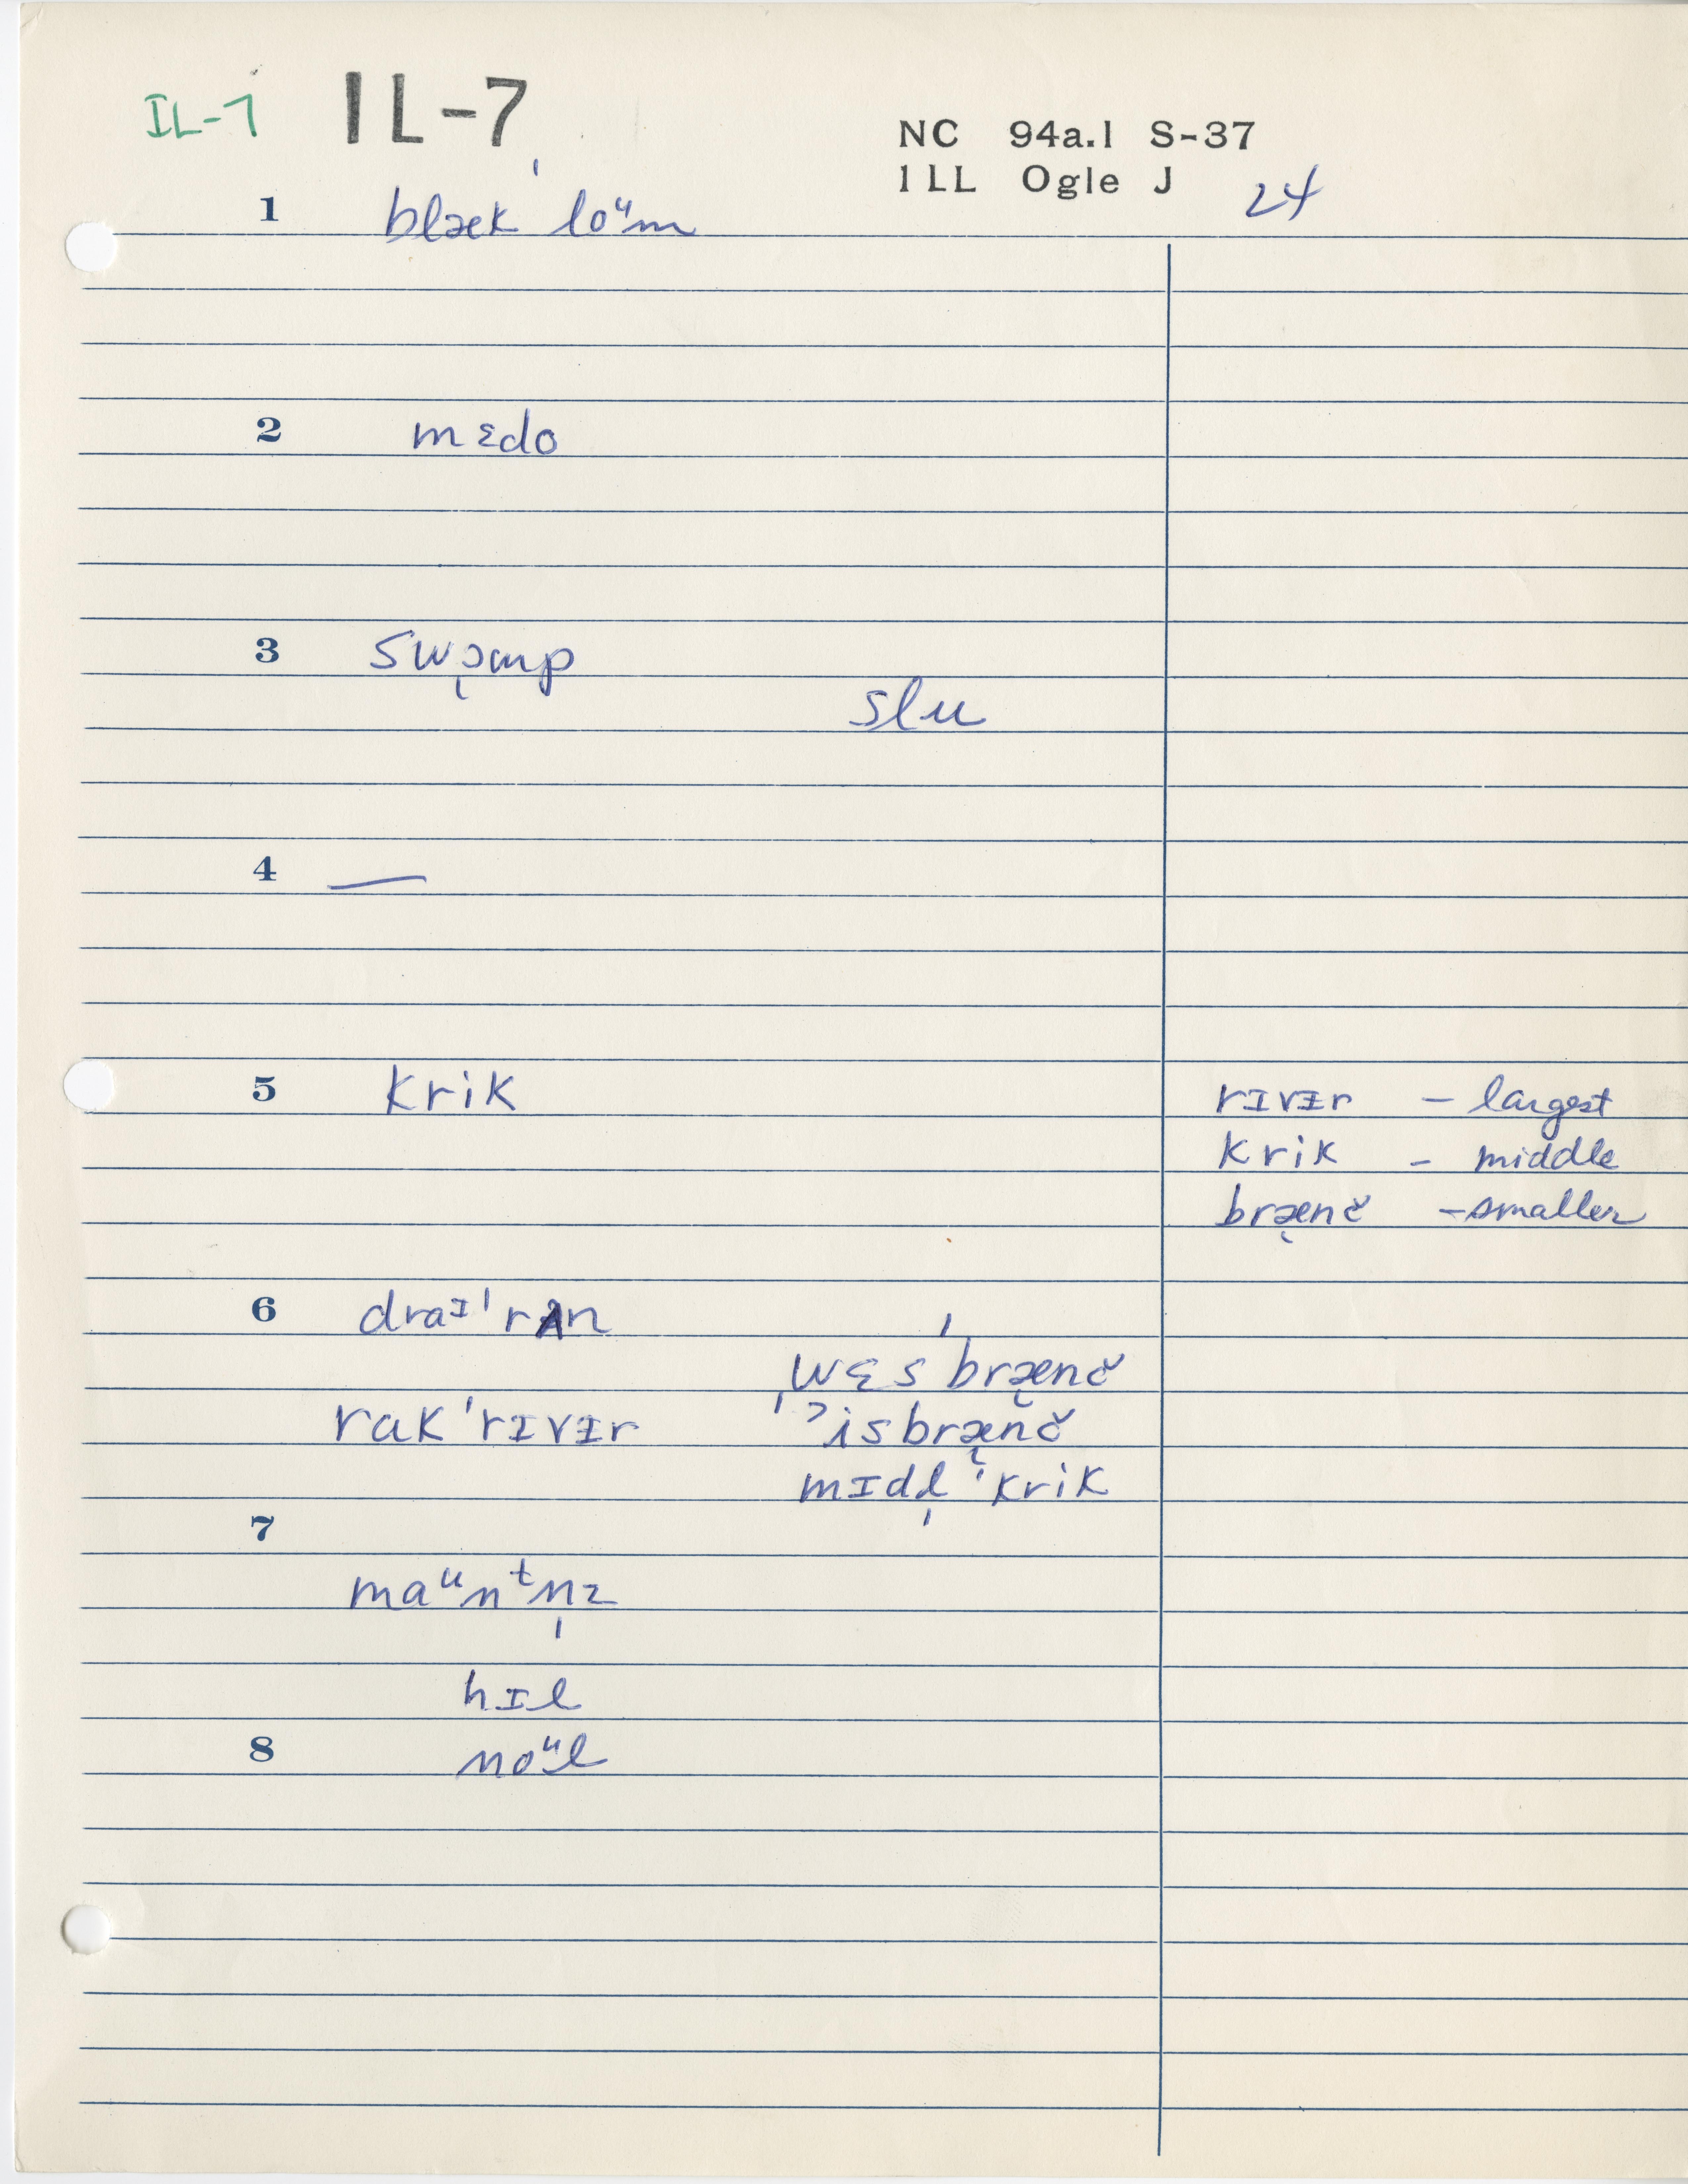 IL-7 IL-7
NC 94a.1 S-37
1LL Ogle J 24
1 blæk ˈloᵘm
2 mɛdo
3 swɔ̨mp
slu
4 —
5 krik
rɪvɪr – largest
krik – middle
bræ̨nč – smaller
6 draᶦˈrʌn
wɛsˈbræ̨nč
rakˈrɪvɪr
ˈisbræ̨nč
mɪdl̩ˈkrik
7
maᵘnᵗn̩z
hɪl
8 noᵘl